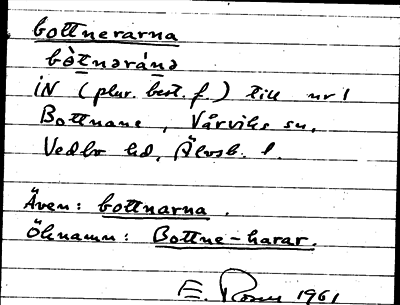 bottnerarna
bòtnəránə
iN (plur. best. f.) till nr 1
Bottnane, Vårviks sn,
Vedbo hd, Älvsb. l.
Även: bottnarna.
Öknamn: Bottne-harar.
E. 1961